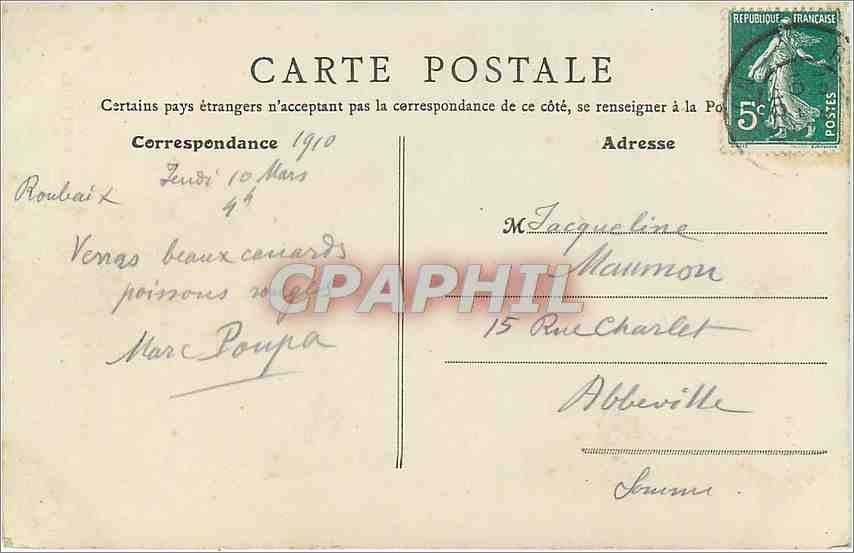 RÉPUBLIQUE FRANÇAISE
5c
POSTES
CARTE POSTALE
Certains pays étrangers n'acceptant pas la correspondance de ce côté, se renseigner à la Po
Correspondance 1910
Jeudi 10 Mars
Roubaix
4h
beaux canards
poissons rouges
Marc Poupa
CPAPHIL
Adresse
M Jacqueline
Maumon
15 Rue Charlet
Abbeville
Somme.